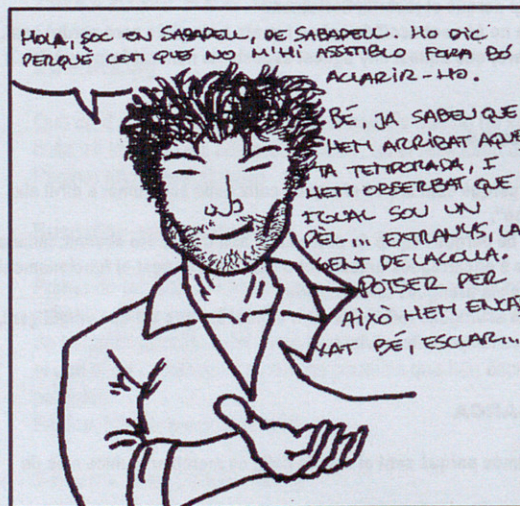 HOLA, SOC EN SABADELL, DE SABADELL. HO DIC
PERQUÈ COM QUE NO M'HI ASSEMBLO FORA BÓ
ACLARIR-HO.
BÉ, JA SABEU QUE
HEM ARRIBAT AQUES
TA TEMPORADA, I
HEM OBSERBAT QUE
TOCAL SOU UN
PÈL... EXTRANYS, LA
GENT DE LA COLLA.
POTSER
AIXÒ HEM ENCAI
XAT BÉ, ESCLAR...
ARCA